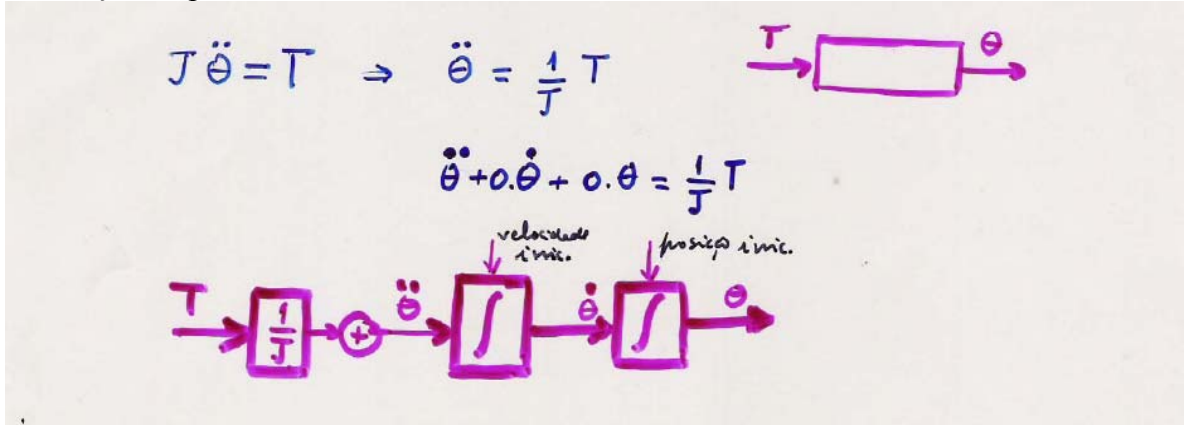 J θ̈ = T ⇒ θ̈ = 1/J T
T θ
θ̈ + 0.θ̇ + 0.θ = 1/J T
velocidade inic.
posição inic.
T 1/J + θ̈ ∫ θ̇ ∫ θ